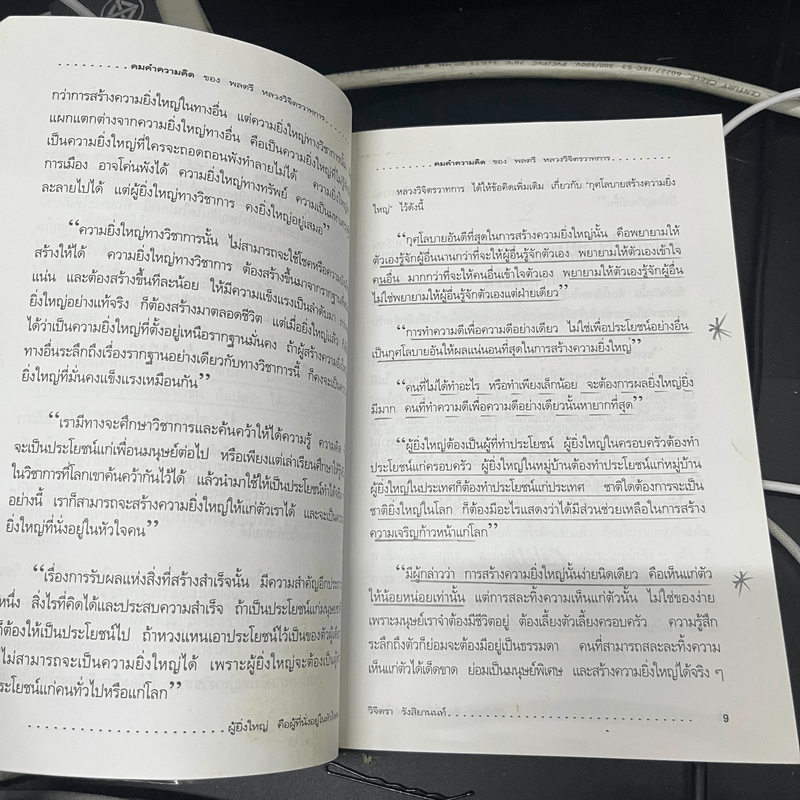 .........คมคำความคิด ของ พลตรี หลวงวิจิตรวาทการ.....
กว่าการสร้างความยิ่งใหญ่ในทางอื่น แต่ความยิ่งใหญ่ทางวิชาการนั้น
แผกแตกต่างจากความยิ่งใหญ่ทางอื่น คือเป็นความยิ่งใหญ่
เป็นความยิ่งใหญ่ที่ใครจะถอดถอนพังทำลายไม่ได้ ความยิ่งใหญ่
การเมือง อาจโค่นพังได้ ความยิ่งใหญ่ทางทรัพย์ ความเป็น
ละลายไปได้ แต่ผู้ยิ่งใหญ่ทางวิชาการ คงยิ่งใหญ่อยู่เสมอ”
“ความยิ่งใหญ่ทางวิชาการนั้น ไม่สามารถจะใช้โชคหรือความ
สร้างให้ได้ ความยิ่งใหญ่ทางวิชาการ ต้องสร้างขึ้นมาจากรากฐาน
แน่น และต้องสร้างขึ้นทีละน้อย ให้มีความแข็งแรงเป็นลำดับมา
ยิ่งใหญ่อย่างแท้จริง ก็ต้องสร้างมาตลอดชีวิต แต่เมื่อยิ่งใหญ่แล้ว
ได้ว่าเป็นความยิ่งใหญ่ที่ตั้งอยู่เหนือรากฐานมั่นคง ถ้าผู้สร้างความยิ่งใหญ่
ทางอื่นระลึกถึงเรื่องรากฐานอย่างเดียวกับทางวิชาการนี้ ก็คงจะเป็นความ
ยิ่งใหญ่ที่มั่นคงแข็งแรงเหมือนกัน”
“เรามีทางจะศึกษาวิชาการและค้นคว้าให้ได้ความรู้ ความคิด
จะเป็นประโยชน์แก่เพื่อนมนุษย์ต่อไป หรือเพียงแต่เล่าเรียนศึกษาให้รู้
ในวิชาการที่โลกเขาค้นคว้ากันไว้ได้ แล้วนำมาใช้ให้เป็นประโยชน์ได้จริง
อย่างนี้ เราก็สามารถจะสร้างความยิ่งใหญ่ให้แก่ตัวเราได้ และจะเป็นความ
ยิ่งใหญ่ที่นั่งอยู่ในหัวใจคน”
“เรื่องการรับผลแห่งสิ่งที่สร้างสำเร็จนั้น มีความสำคัญอีกประการ
หนึ่ง สิ่งไรที่คิดได้และประสบความสำเร็จ ถ้าเป็นประโยชน์แก่มนุษยชาติ
ก็ต้องให้เป็นประโยชน์ไป ถ้าหวงแหนเอาประโยชน์ไว้เป็นของตัวผู้เดียว
ไม่สามารถจะเป็นความยิ่งใหญ่ได้ เพราะผู้ยิ่งใหญ่จะต้องเป็นผู้
ประโยชน์แก่คนทั่วไปหรือแก่โลก”
.................................ผู้ยิ่งใหญ่ คือผู้ที่นั่งอยู่ในหัวใจ
.........คมคำความคิด ของ พลตรี หลวงวิจิตรวาทการ.........
หลวงวิจิตรวาทการ ได้ให้ข้อคิดเพิ่มเติม เกี่ยวกับ “กุศโลบายสร้างความยิ่ง
ใหญ่” ไว้ดังนี้
“กุศโลบายอันดีที่สุดในการสร้างความยิ่งใหญ่นั้น คือพยายามให้
ตัวเองรู้จักผู้อื่นนานกว่าที่จะให้ผู้อื่นรู้จักตัวเอง พยายามให้ตัวเองเข้าใจ
คนอื่น มากกว่าที่จะให้คนอื่นเข้าใจตัวเอง พยายามให้ตัวเองรู้จักผู้อื่น
ไม่ใช่พยายามให้ผู้อื่นรู้จักตัวเองแต่ฝ่ายเดียว”
“การทำความดีเพื่อความดีอย่างเดียว ไม่ใช่เพื่อประโยชน์อย่างอื่น
เป็นกุศโลบายอันให้ผลแน่นอนที่สุดในการสร้างความยิ่งใหญ่”
“คนที่ไม่ได้ทำอะไร หรือทำเพียงเล็กน้อย จะต้องการผลยิ่งใหญ่ยิ่ง
มีมาก คนที่ทำความดีเพื่อความดีอย่างเดียวนั้นหายากที่สุด”
“ผู้ยิ่งใหญ่ต้องเป็นผู้ที่ทำประโยชน์ ผู้ยิ่งใหญ่ในครอบครัวต้องทำ
ประโยชน์แก่ครอบครัว ผู้ยิ่งใหญ่ในหมู่บ้านต้องทำประโยชน์แก่หมู่บ้าน
ผู้ยิ่งใหญ่ในประเทศก็ต้องทำประโยชน์แก่ประเทศ ชาติใดต้องการจะเป็น
ชาติยิ่งใหญ่ในโลก ก็ต้องมีอะไรแสดงว่าได้มีส่วนช่วยเหลือในการสร้าง
ความเจริญก้าวหน้าแก่โลก”
“มีผู้กล่าวว่า การสร้างความยิ่งใหญ่นั้นง่ายนิดเดียว คือเห็นแก่ตัว
ให้น้อยหน่อยเท่านั้น แต่การสละทิ้งความเห็นแก่ตัวนั้น ไม่ใช่ของง่าย
เพราะมนุษย์เราจำต้องมีชีวิตอยู่ ต้องเลี้ยงตัวเลี้ยงครอบครัว ความรู้สึก
ระลึกถึงตัวก็ย่อมจะต้องมีอยู่เป็นธรรมดา คนที่สามารถสละละทิ้งความ
เห็นแก่ตัวได้เด็ดขาด ย่อมเป็นมนุษย์พิเศษ และสร้างความยิ่งใหญ่ได้จริง ๆ
วิจิตรา รังสิยานนท์........................................ 9